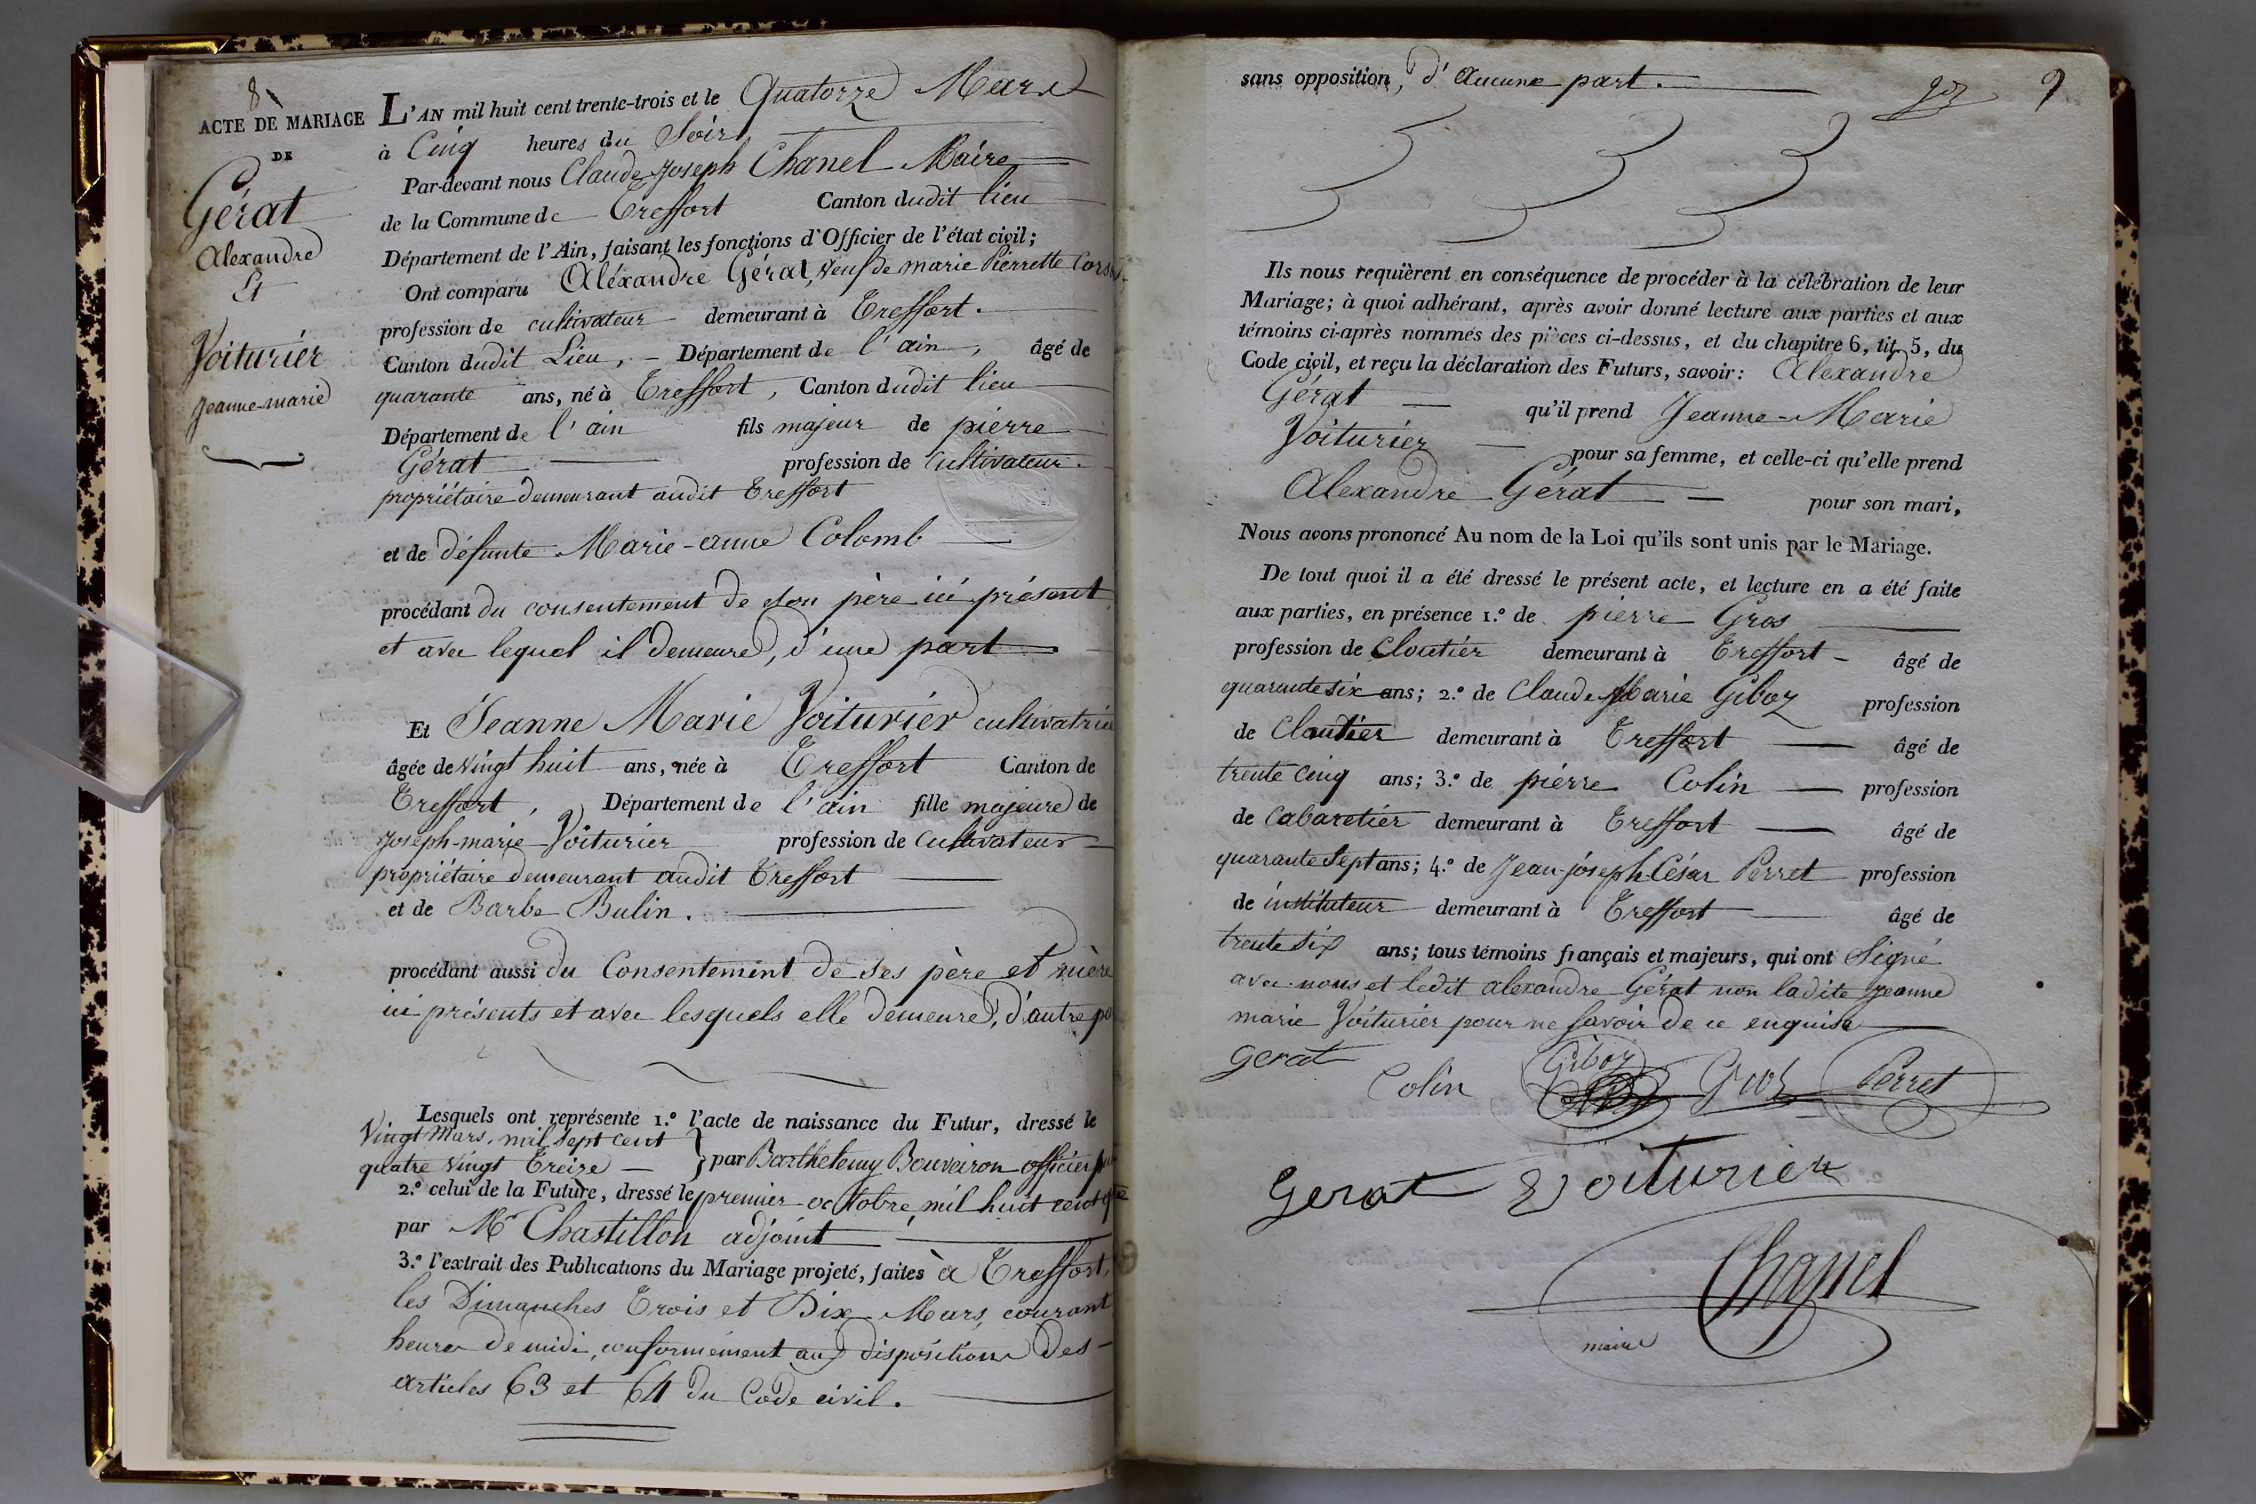 8
ACTE DE MARIAGE
DE
Gérat
Alexandre
Et
Voiturier
Jeanne-marie
L'AN mil huit cent trente-trois et le Quatorze Mars
à Cinq heures du Soir,
Par-devant nous Claude Joseph Chanel Maire
de la Commune de Treffort Canton dudit lieu
Département de l'Ain, faisant les fonctions d'Officier de l'état civil;
Ont comparu Aléxandre Gérat, veuf de marie Pierrette
profession de cultivateur demeurant à Treffort.
Canton dudit Lieu, - Département de l'ain, âgé de
quarante ans, né à Treffort, Canton dudit lieu
Département de l'ain fils majeur de pierre
Gérat profession de cultivateur.
propriétaire demeurant audit Treffort
et de défunte Marie-anne Colomb
procédant du consentement de son père ici présent
et avec lequel il demeure, d'une part
Et Jeanne Marie Voiturier cultivatrice
âgée de vingt huit ans, née à Treffort Canton de
Treffort, Département de l'ain fille majeure de
Joseph-marie Voiturier profession de cultivateur
propriétaire demeurant audit Treffort
et de Barbe Bulin.
procédant aussi du Consentement de ses père et mère
ici présents et avec lesquels elle demeure, d'autre
Lesquels ont représente 1.º l'acte de naissance du Futur, dressé le
Vingt Mars, mil sept cent
quatre vingt treize - } par Barthelemy Bouveiron officier
2.º celui de la Future, dressé le premier octobre mil huit cent
par Mr Chastillon adjoint
3.º l'extrait des Publications du Mariage projeté, faites à Treffort,
les Dimanches Trois et Dix Mars, courant
heures de midi, conformément aux dispositions des
articles 63 et 64 du Code civil.
9
sans opposition, d'Aucune part.
Ils nous requièrent en conséquence de procéder à la célébration de leur
Mariage; à quoi adhérant, après avoir donné lecture aux parties et aux
témoins ci-après nommés des pièces ci-dessus, et du chapitre 6, tit. 5, du
Code civil, et reçu la déclaration des Futurs, savoir: Alexandre
Gérat qu'il prend Jeanne-Marie
Voiturier pour sa femme, et celle-ci qu'elle prend
Alexandre Gérat pour son mari,
Nous avons prononcé Au nom de la Loi qu'ils sont unis par le Mariage.
De tout quoi il a été dressé le présent acte, et lecture en a été faite
aux parties, en présence 1.º de pierre Gros
profession de Cloutier demeurant à Treffort - âgé de
quarante six ans; 2.º de Claude Marie Giboz profession
de Cloutier demeurant à Treffort âgé de
trente cinq ans; 3.º de pierre Colin profession
de Cabaretier demeurant à Treffort âgé de
quarante Sept ans; 4.º de Jean-joseph-César Perret profession
de instituteur demeurant à Treffort âgé de
trente six ans; tous témoins français et majeurs, qui ont Signé
avec nous et ledit alexandre Gérat non ladite jeanne
marie Voiturier pour ne savoir de ce enquise
gerat
Colin Giboz Gros Perret
Gerat Voiturier
Chanel
maire